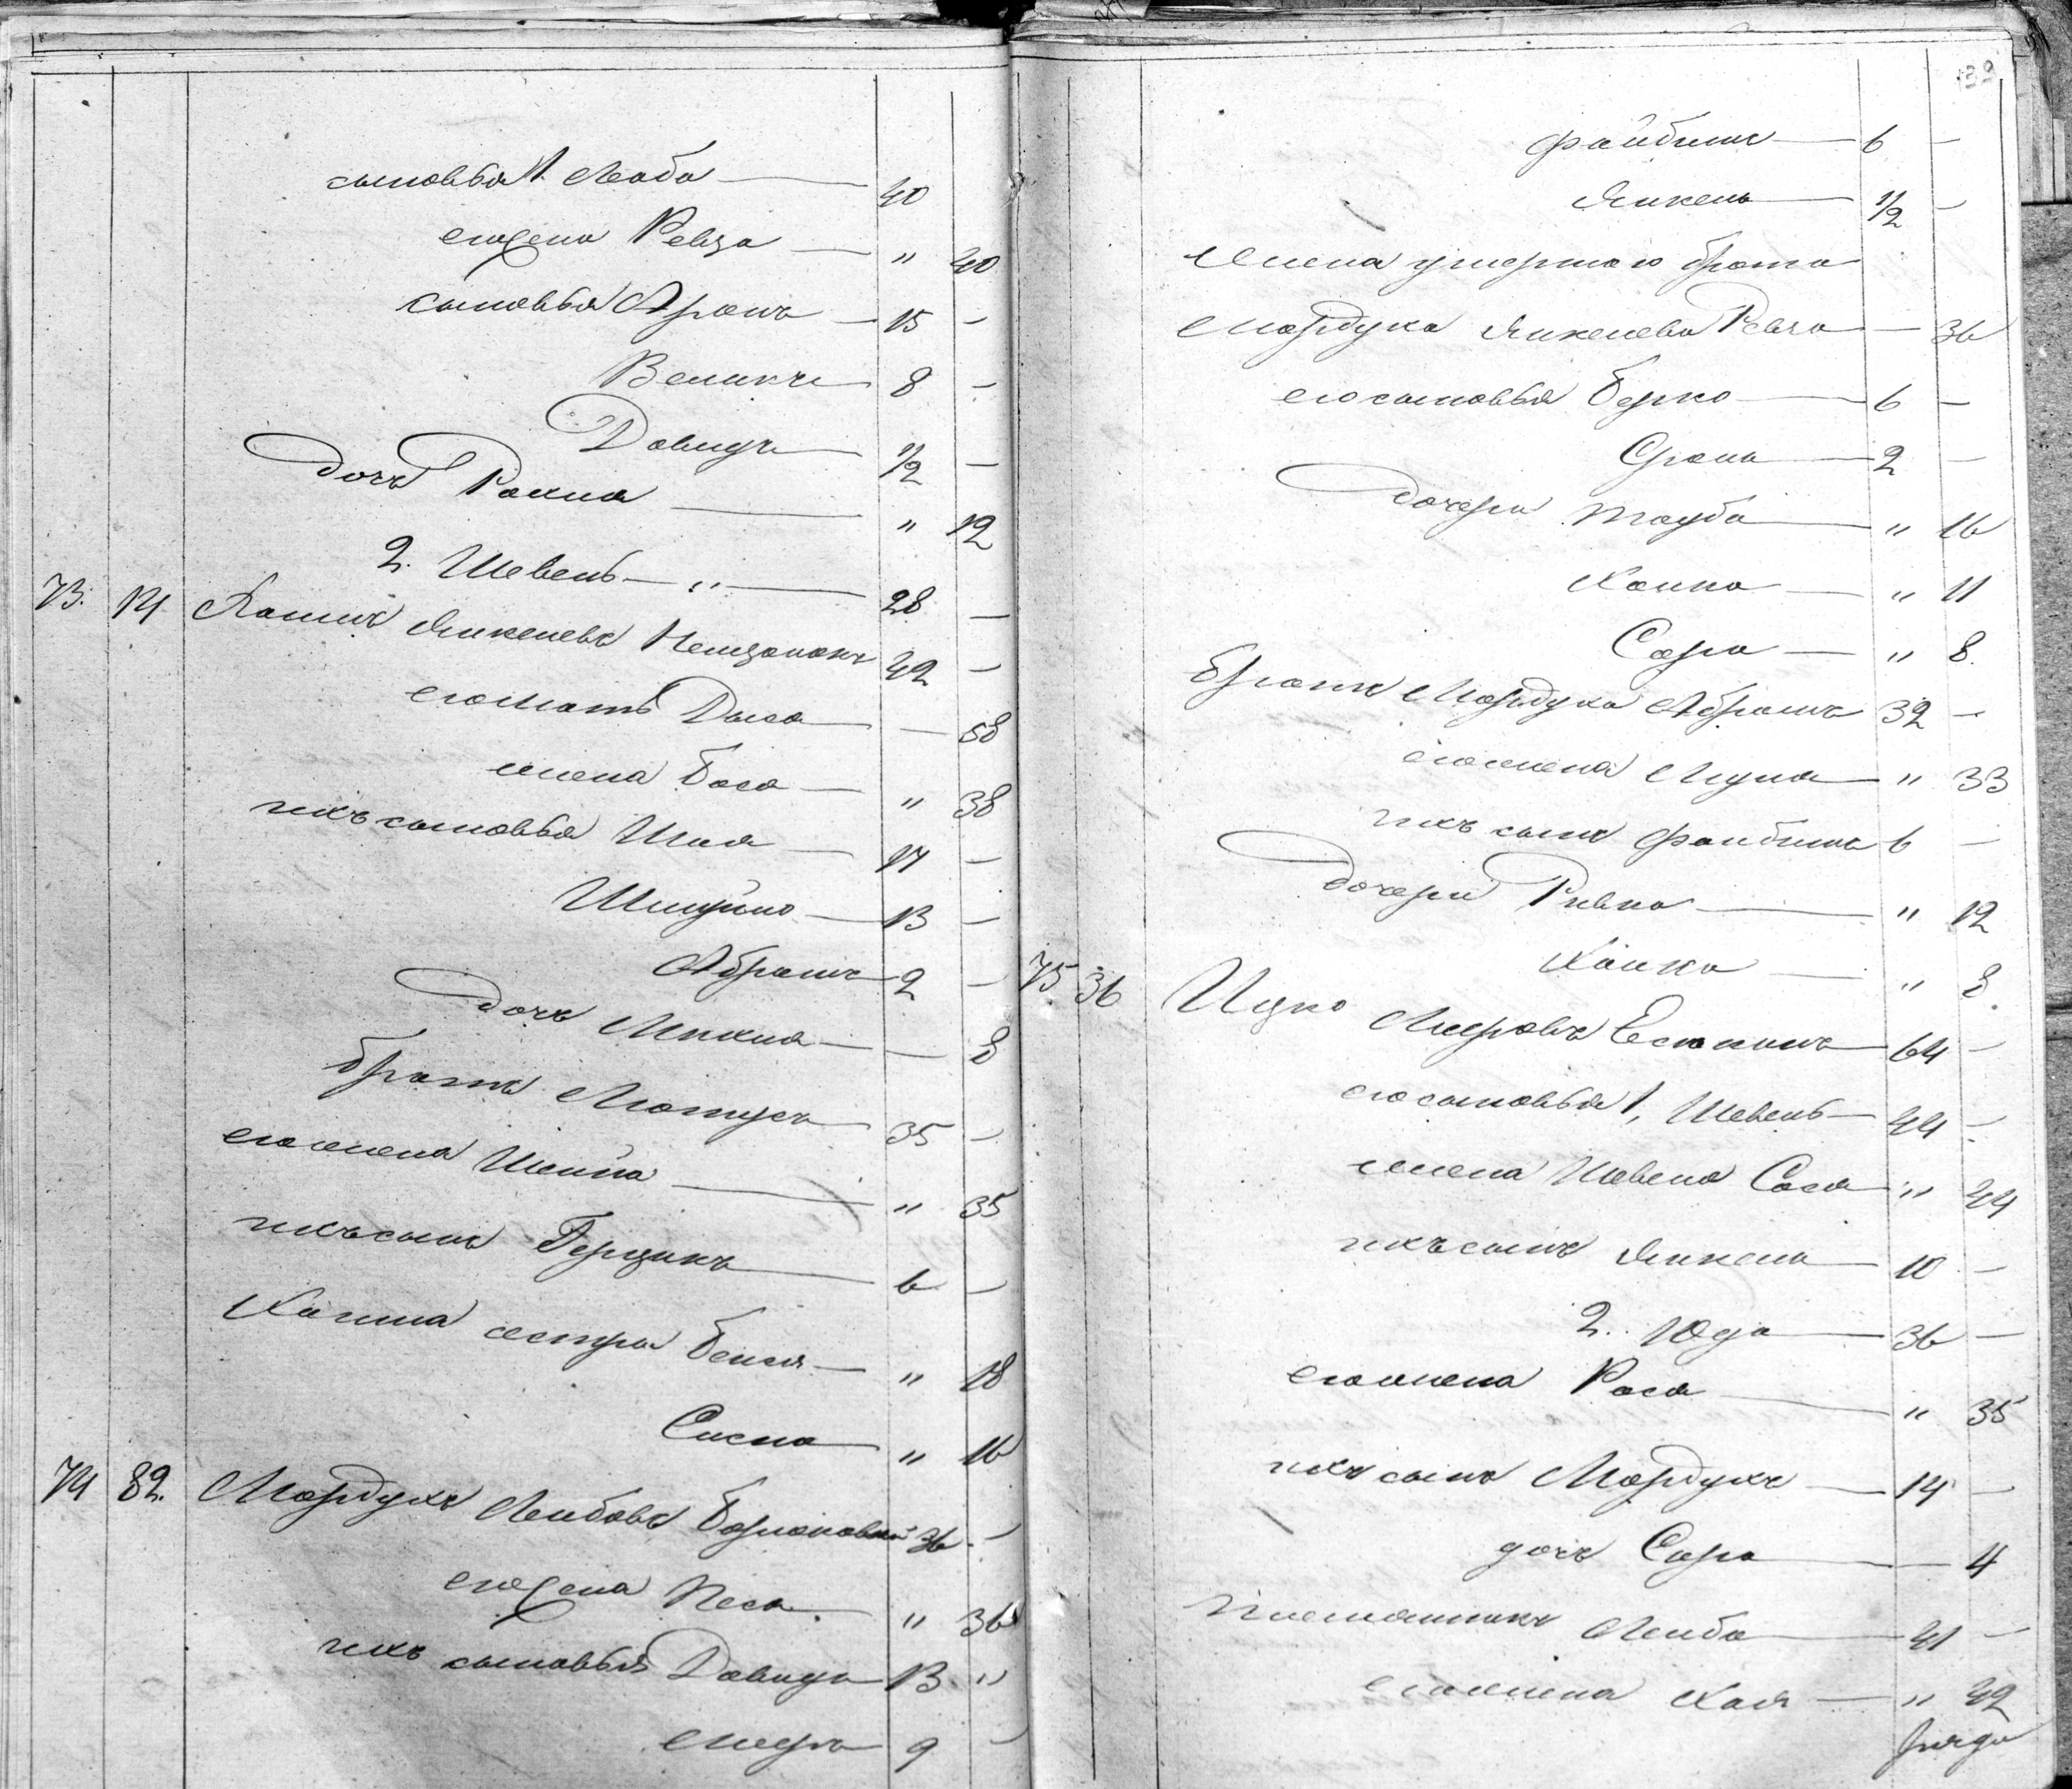 сыновья 1. Лейба — 40
его жена Ревза — " 40
сыновья Аронъ — 15 –
Велькъ 8 –
Давидъ 1/2 –
дочь Рахиа — " 12
2. Шевель — " — 28 –
73. 14 Хаимъ Янкелевъ 42 –
его мать Дыса — — 58
жена Бася — " 38
ихъ сыновья Шая — 17 –
Шмуйло — 13 –
Абрамъ 2 –
дочь — — 8
братъ Мотусъ 35 –
его жена Шейна — " 35
ихъ сынъ Герцикъ — 6 –
Хаима сестра Бейля — " 18
Сисна " 16
74 82. Мордухъ Лейбовъ 36 –
его жена Песа " 36
ихъ сыновья Давидъ 13 "
Мееръ 9 –
132
Файбишъ — 6 –
Янкель — 1/2 –
Жена умершаго брата
Мордуха Янкелева Ревза — 36
его сыновья Берко — 6 –
Сроль — 2 –
дочери Тауба — " 16
Ханна — " 11
Сора — " 8
братъ Мордуха Абрамъ 32 –
его жена — " 33
ихъ сынъ Файбишъ 6 –
дочери Ривка — " 12
Ханка — " 8
75 36 Ицко Мееровъ 64 –
его сыновья 1, Шевель — 44 –
жена Шевеля Сося " 44
ихъ сынъ Янкель — 10 –
2. Юда — 36 –
его жена Рася — " 35
ихъ сынъ Мордухъ — 14 –
дочь Сора — — 4
Племянникъ Лейба — 41 –
его жена Хая — " 42